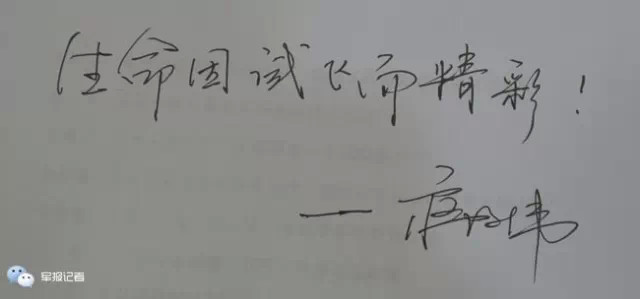 生命因试飞而精彩！
军报记者